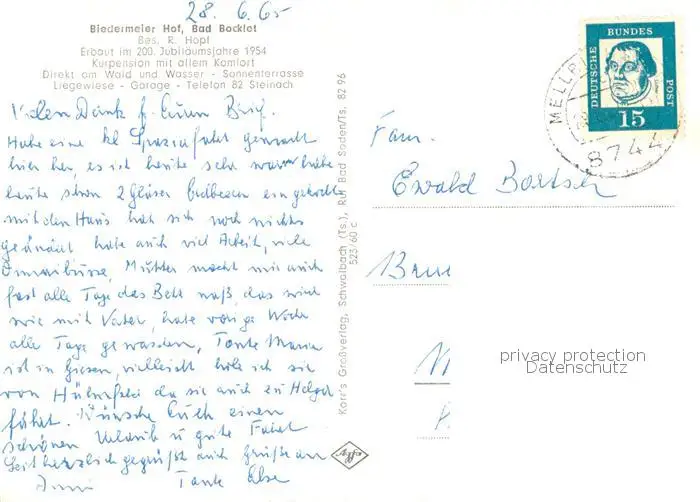 28. 6. 65
Biedermeier Hof, Bad Bocklet
Bes. R. Hopf
Erbaut im 200. Jubiläumsjahre 1954
Kurpension mit allem Komfort
Direkt am Wald und Wasser - Sonnenterrasse
Liegewiese - Garage - Telefon 82 Steinach
Vielen Dank f. Euren Brief.
Habe eine kl Spazierfahrt gemacht
hier her, es ist heute sehr warm habe
heute schon 2 Gläser Erdbeeren eingekocht
mit den Haus hat sich noch nichts
geändert habe auch viel Arbeit, viele
Mutter macht mir auch
fast alle Tage das Bett naß, das wird
wie mit Vater, habe vorige Woche
alle Tage gewaschen, Tante Maria
ist in Giesen, vielleicht hole ich sie
von da sie auch zu Helga
fährt. Wünsche Euch einen
schönen Urlaub u gute Fahrt
Seit herzlich gegrüßt auch Grüße an
Anni Tante Else
Korr's Großverlag, Schwalbach (Ts.), Ruf Bad Soden/Ts. 82 96
523/60 c
Agfa
DEUTSCHE BUNDES POST
15
8744
Fam.
Ewald Bartsch
privacy protection
Datenschutz